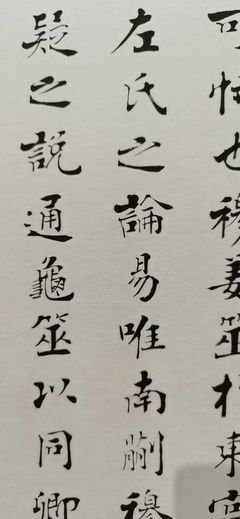 可怪也穆姜筮於東宮
左氏之論易唯南蒯穆
疑之說通龜筮以同卿